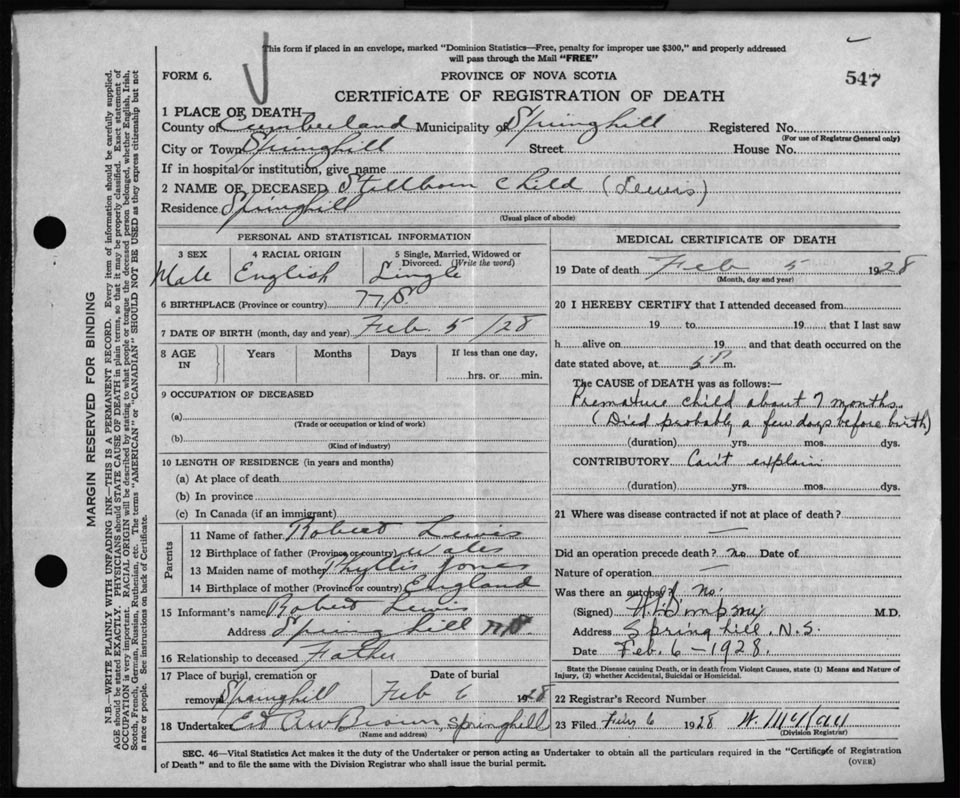 This form if placed in an envelope, marked "Dominion Statistics—Free, penalty for improper use $300," and properly addressed
will pass through the Mail "FREE"
FORM 6.
PROVINCE OF NOVA SCOTIA
547
CERTIFICATE OF REGISTRATION OF DEATH
1 PLACE OF DEATH—
County of Cumberland Municipality of Springhill Registered No.
(For use of Registrar General only)
City or Town Springhill Street House No.
If in hospital or institution, give name
2 NAME OF DECEASED Stillborn Child (Lewis)
Residence Springhill
(Usual place of abode)
PERSONAL AND STATISTICAL INFORMATION
3 SEX 4 RACIAL ORIGIN 5 Single, Married, Widowed or Divorced. (Write the word)
Male English Single
6 BIRTHPLACE (Province or country) N.S.
7 DATE OF BIRTH (month, day and year) Feb. 5/28
8 AGE IN Years Months Days If less than one day,
hrs. or min.
9 OCCUPATION OF DECEASED
(a)
(Trade or occupation or kind of work)
(b)
(Kind of industry)
10 LENGTH OF RESIDENCE (in years and months)
(a) At place of death
(b) In province
(c) In Canada (if an immigrant)
Parents
11 Name of father Robert Lewis
12 Birthplace of father (Province or country) Wales
13 Maiden name of mother Phyllis Jones
14 Birthplace of mother (Province or country) England
15 Informant's name Robert Lewis
Address Springhill N.S.
16 Relationship to deceased Father
17 Place of burial, cremation or removal Date of burial
Springhill Feb 6 1928
18 Undertaker Brown, Springhill
(Name and address)
MEDICAL CERTIFICATE OF DEATH
19 Date of death Feb 5 1928
(Month, day and year)
20 I HEREBY CERTIFY that I attended deceased from
19 to 19 that I last saw
h alive on 19 and that death occurred on the
date stated above, at 5 P m.
The CAUSE of DEATH was as follows:—
Premature child about 7 months.
(Died probably a few days before birth)
(duration) yrs. mos. dys.
CONTRIBUTORY Can't explain
(duration) yrs. mos. dys.
21 Where was disease contracted if not at place of death?
—
Did an operation precede death? no Date of
Nature of operation —
Was there an autopsy? No.
(Signed) M.D.
Address Springhill. N.S.
Date Feb. 6 – 1928.
State the Disease causing Death, or in death from Violent Causes, state (1) Means and Nature of
Injury, (2) whether Accidental, Suicidal or Homicidal.
22 Registrar's Record Number
23 Filed 6 1928 W. McKay
(Division Registrar)
SEC. 46—Vital Statistics Act makes it the duty of the Undertaker or person acting as Undertaker to obtain all the particulars required in the "Certificate of Registration
of Death" and to file the same with the Division Registrar who shall issue the burial permit.
(OVER)
MARGIN RESERVED FOR BINDING
N.B.—WRITE PLAINLY WITH UNFADING INK—THIS IS A PERMANENT RECORD. Every item of information should be carefully supplied.
AGE should be stated EXACTLY. PHYSICIANS should STATE CAUSE OF DEATH in plain terms, so that it may be properly classified. Exact statement of
OCCUPATION is very important. RACIAL ORIGIN will be described by stating to what people or tongue the deceased person belonged, whether English, Irish,
Scotch, French, German, Russian, Ruthenian, etc. The terms "AMERICAN" or "CANADIAN" SHOULD NOT BE USED as they express citizenship but not
a race or people. See instructions on back of Certificate.